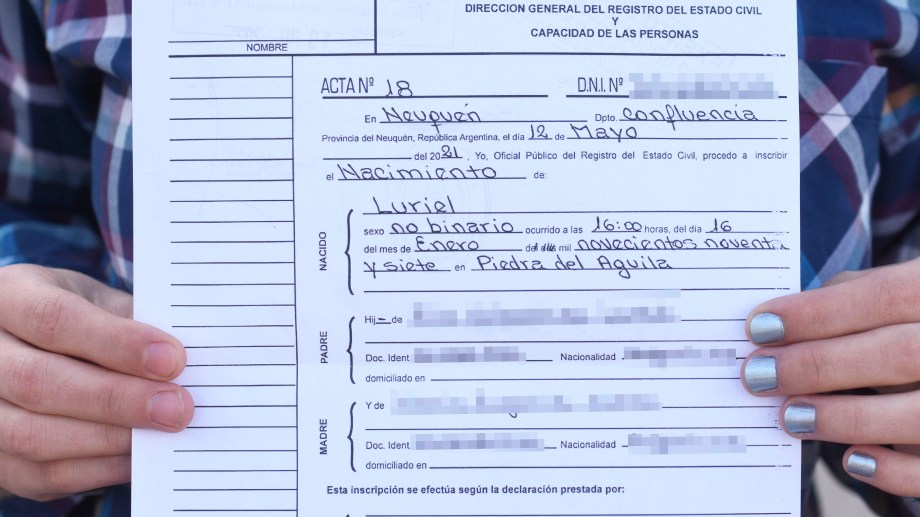 DIRECCION GENERAL DEL REGISTRO DEL ESTADO CIVIL
Y
CAPACIDAD DE LAS PERSONAS
NOMBRE
ACTA Nº 18 D.N.I. Nº
En Neuquén Dpto. Confluencia
Provincia del Neuquén, República Argentina, el día 12 de Mayo
del 2021, Yo, Oficial Público del Registro del Estado Civil, procedo a inscribir
el Nacimiento de:
NACIDO
Luriel
sexo no binario ocurrido a las 16:00 horas, del día 16
del mes de Enero mil novecientos noventa
y siete en Piedra del Aguila
PADRE
Hij de
Doc. Ident Nacionalidad
domiciliado en
MADRE
Y de
Doc. Ident Nacionalidad
domiciliado en
Esta inscripción se efectúa según la declaración prestada por: